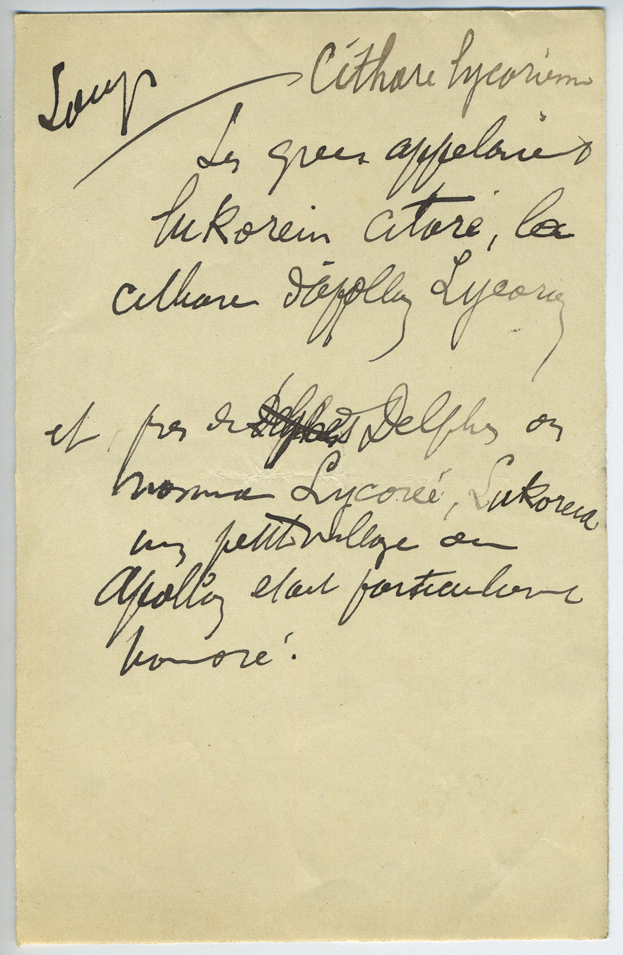 Loup
Cithare lycorienne
Les grecs appelaient
lukorein citaré, la
cithare d'Apollon Lycoréen
et, pres de Delphes Delphes on
nomma Lycorée, Lukoreia
un petit village ou
Apollon etait particulierement
honoré.